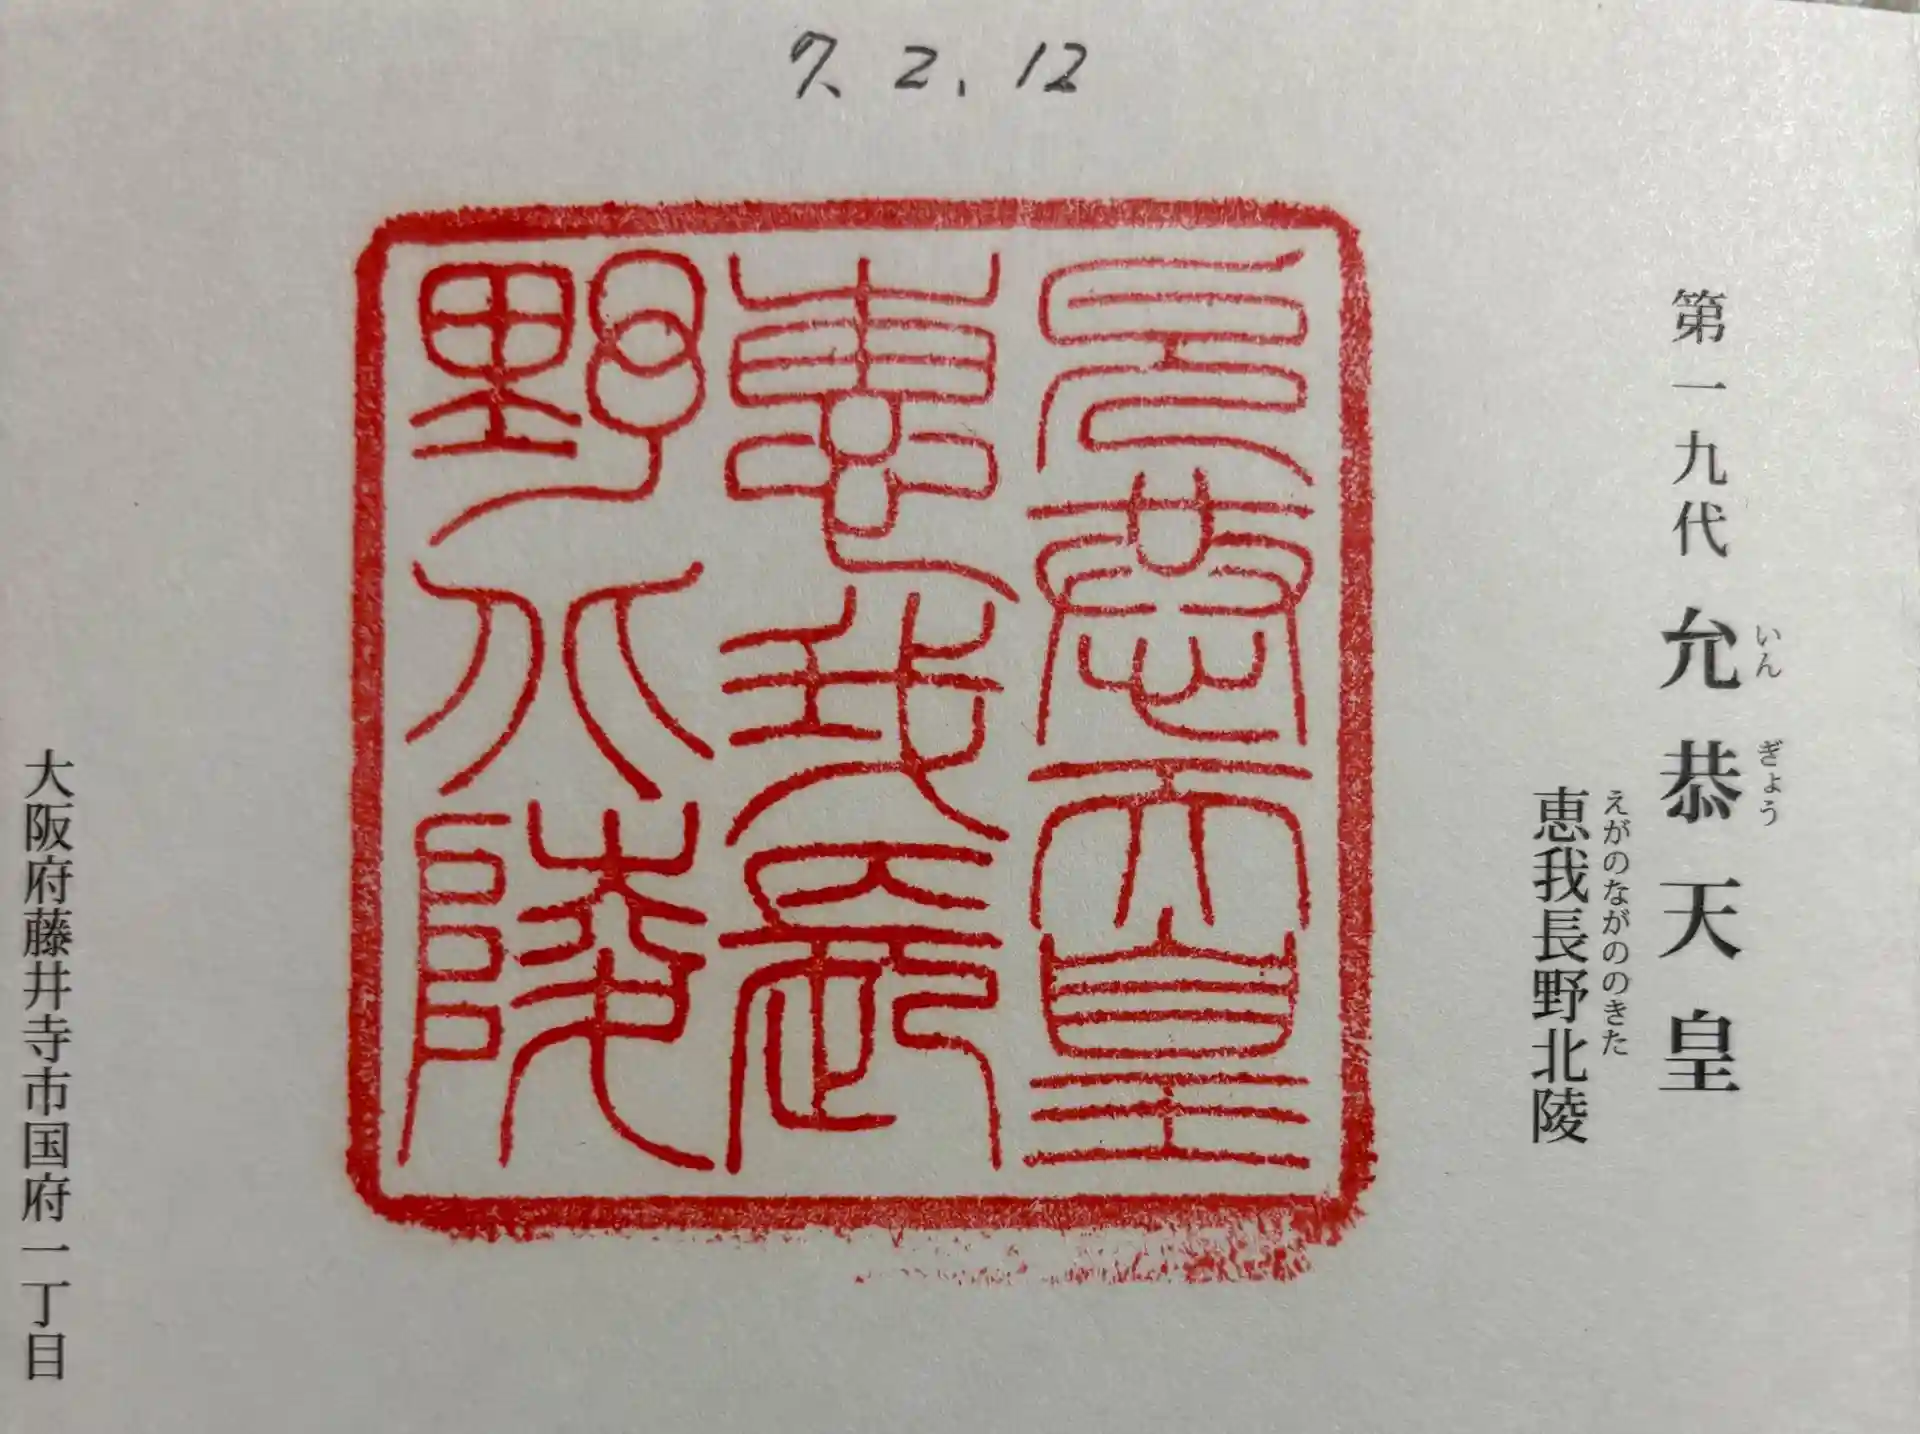 7.2.12
第一九代 允恭天皇
いんぎょう
恵我長野北陵
えがのながののきた
允恭天皇
恵我長
野北陵
大阪府藤井寺市国府一丁目